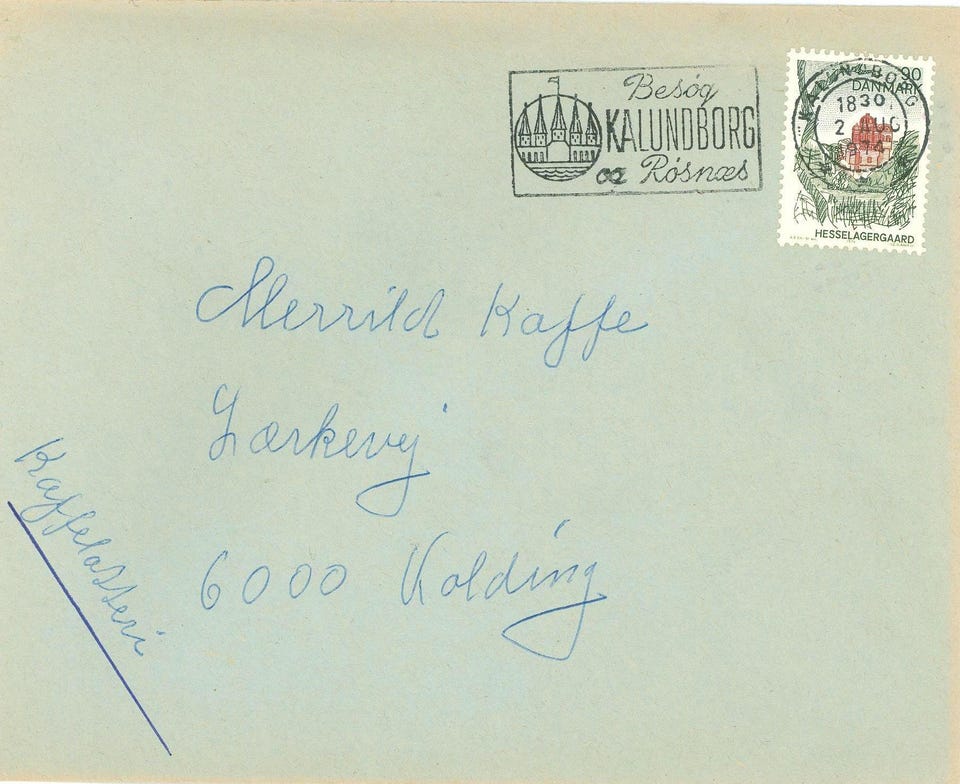 Besøg
KALUNDBORG
og Røsnæs
KALUNDBORG
1830
2 AUG
1974
90
DANMARK
HESSELAGERGAARD
Merrild Kaffe
Lærkevej
6000 Kolding
Kaffelotteri